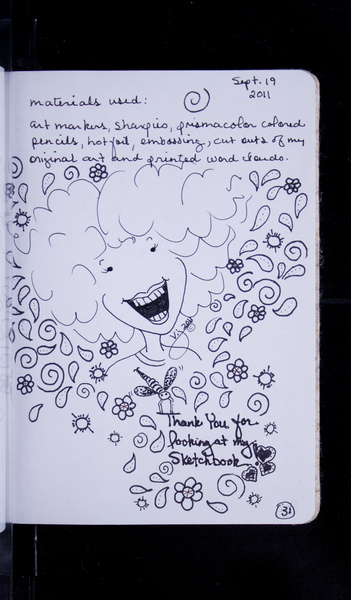 Sept. 19
2011
materials used:
art markers, sharpies, prismacolor colored
pencils, hot foil, embossing, cut outs of my
original art and printed word clouds.
Thank You for
looking at my
Sketchbook
31